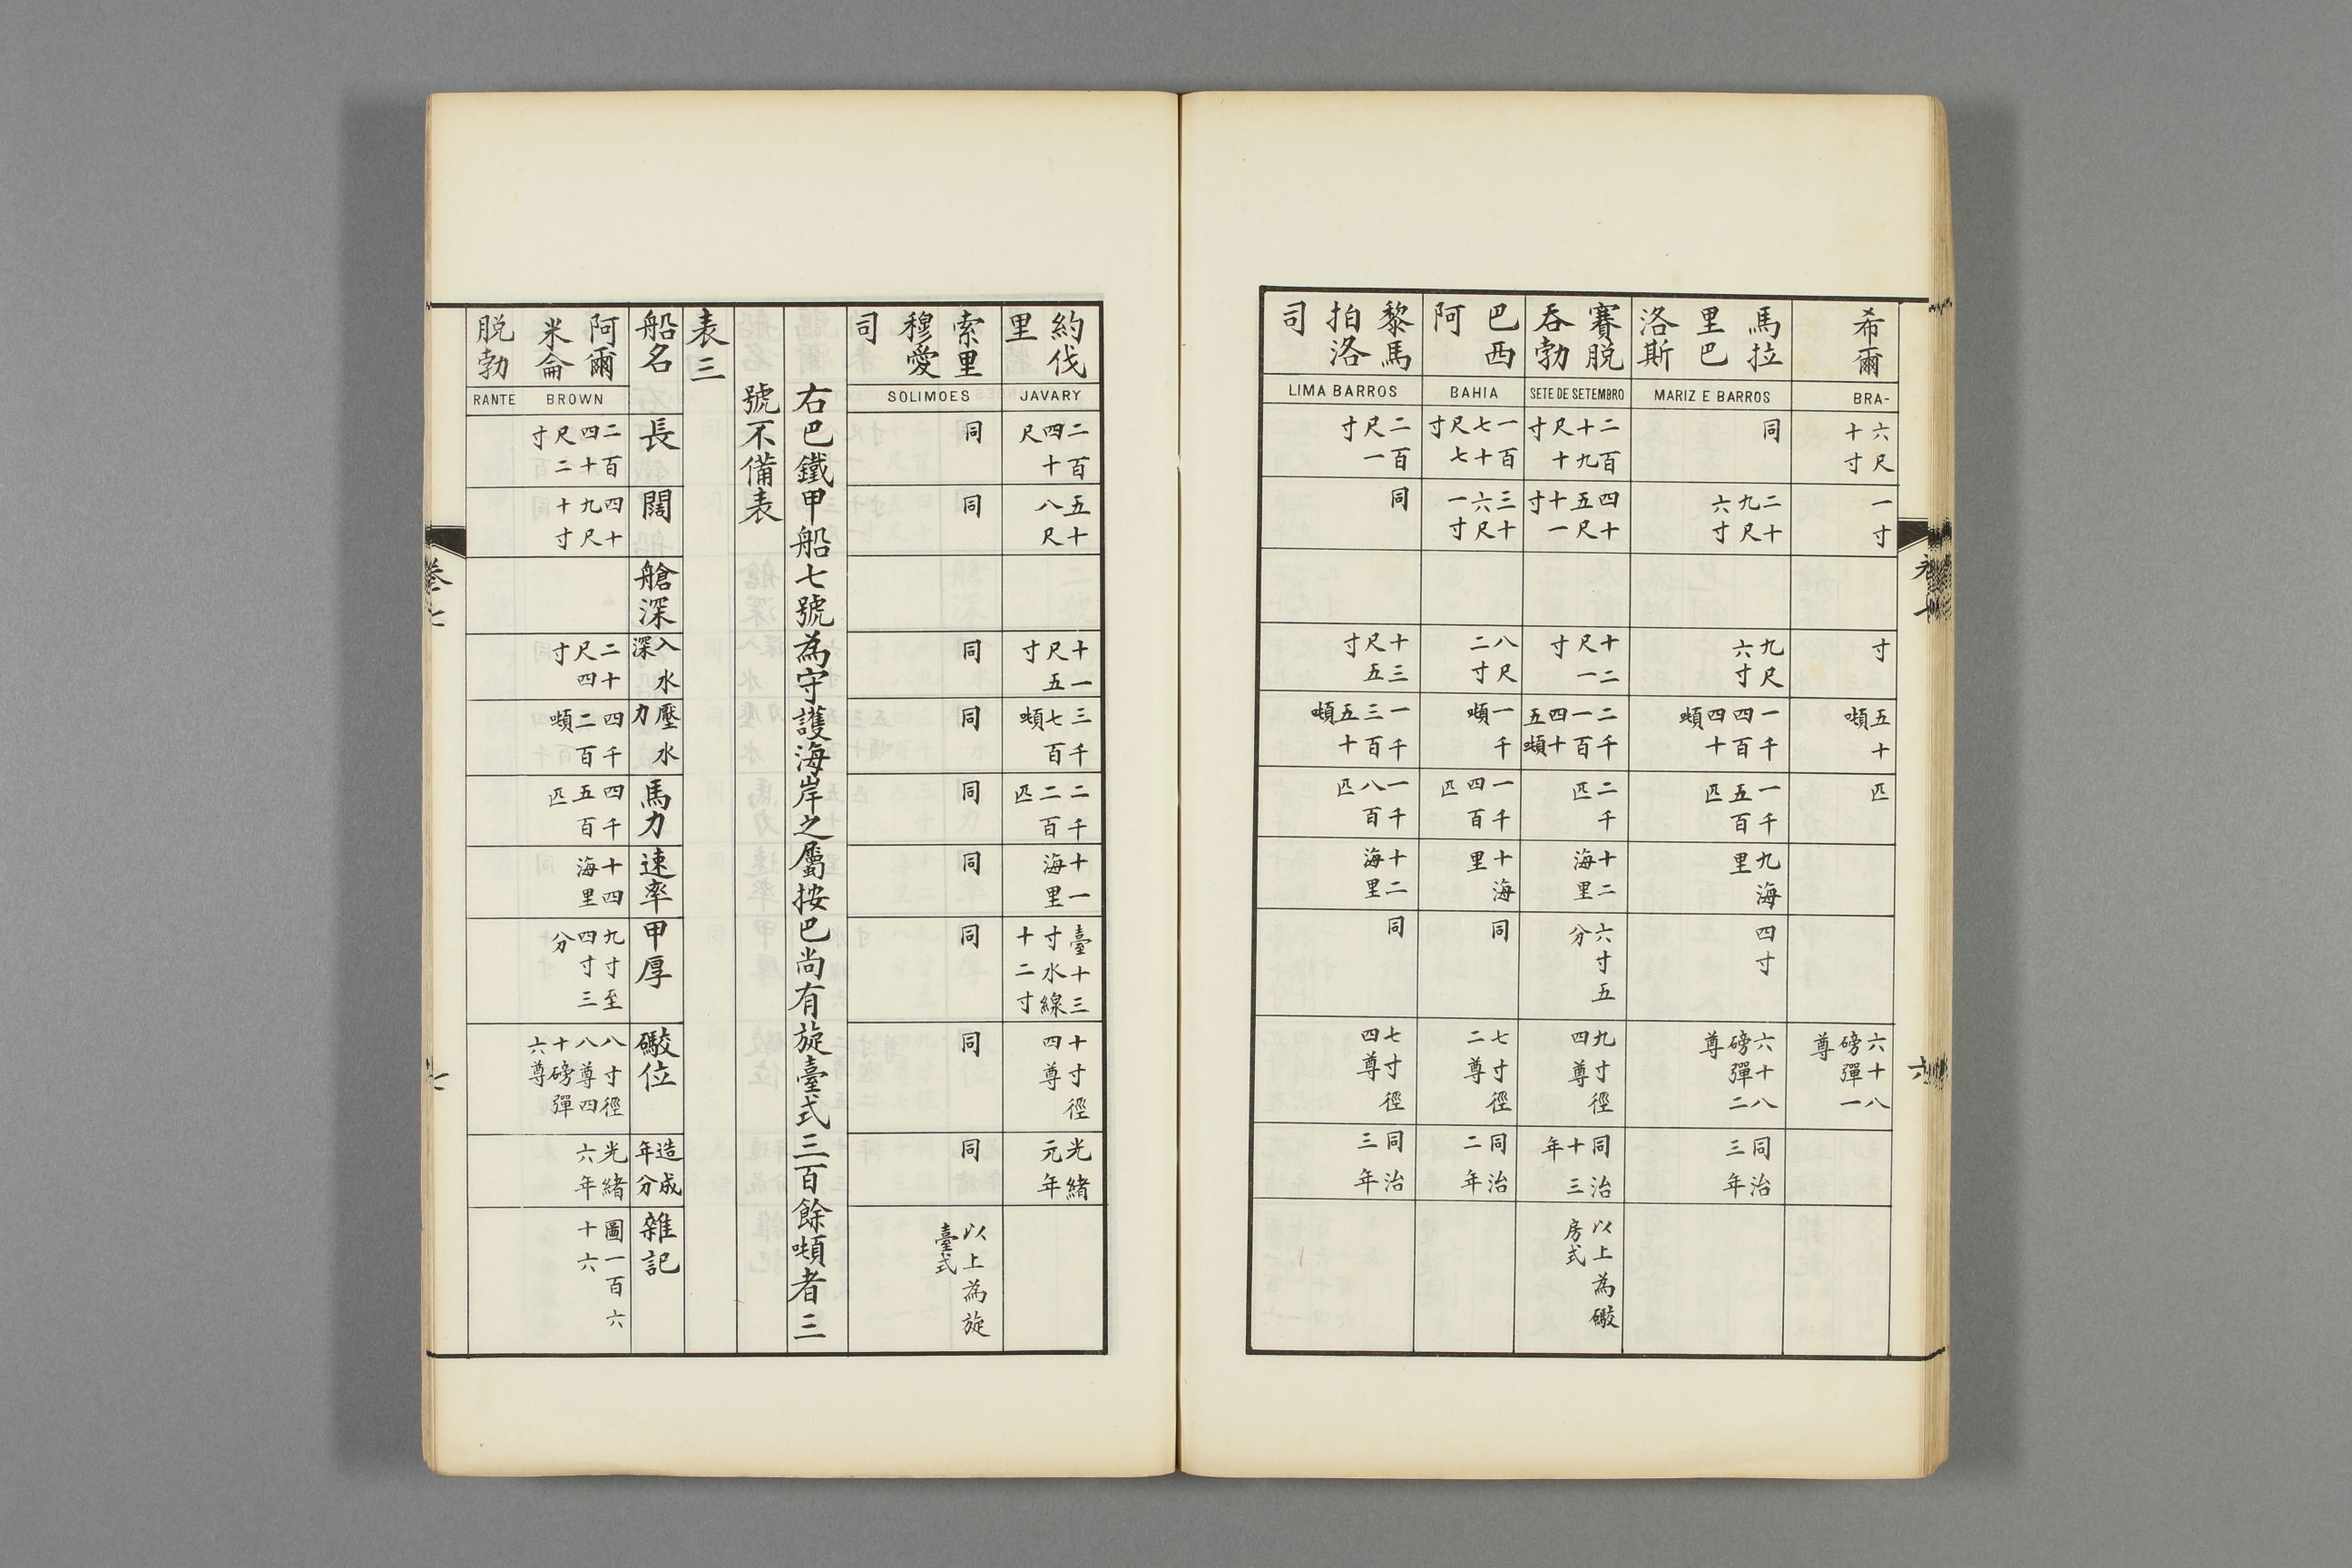 卷七
六
希爾
BRA-
六尺十寸
一寸
寸
五十噸
匹
六十八磅彈一尊
馬拉里巴洛斯
MARIZ E BARROS
同
二十九尺六寸
九尺六寸
一千四百四十噸
一千五百匹
九海里
四寸
六十八磅彈二尊
同治三年
賽脱吞勃
SETE DE SETEMBRO
二百十九尺十寸
四十五尺十一寸
十二尺一寸
二千一百四十五噸
二千匹
十二海里
六寸五分
九寸徑四尊
同治十三年
以上為礮房式
巴西阿
BAHIA
一百七十尺七寸
三十六尺一寸
八尺二寸
一千噸
一千四百匹
十海里
同
七寸徑二尊
同治二年
黎馬拍洛司
LIMA BARROS
二百尺一寸
同
十三尺五寸
一千三百五十噸
一千八百匹
十二海里
同
七寸徑四尊
同治三年
約伐里
JAVARY
二百四十尺
五十八尺
十一尺五寸
三千七百噸
二千二百匹
十一海里
臺十三寸水線十二寸
十寸徑四尊
光緒元年
索里穆愛司
SOLIMOES
同
同
同
同
同
同
同
同
同
以上為旋臺式
右巴鐵甲船七號為守護海岸之屬按巴尚有旋臺式三百餘噸者三
號不備表
表三
船名
長
闊
艙深
入水深
壓水力
馬力
速率
甲厚
礮位
造成年分
雜記
阿爾米侖
BROWN
二百四十尺二寸
四十九尺十寸
二十尺四寸
四千二百噸
四千五百匹
十四海里
九寸至四寸三分
八寸徑八尊四十磅彈六尊
光緒六年
圖一百六十六
脱勃
RANTE
卷七
七